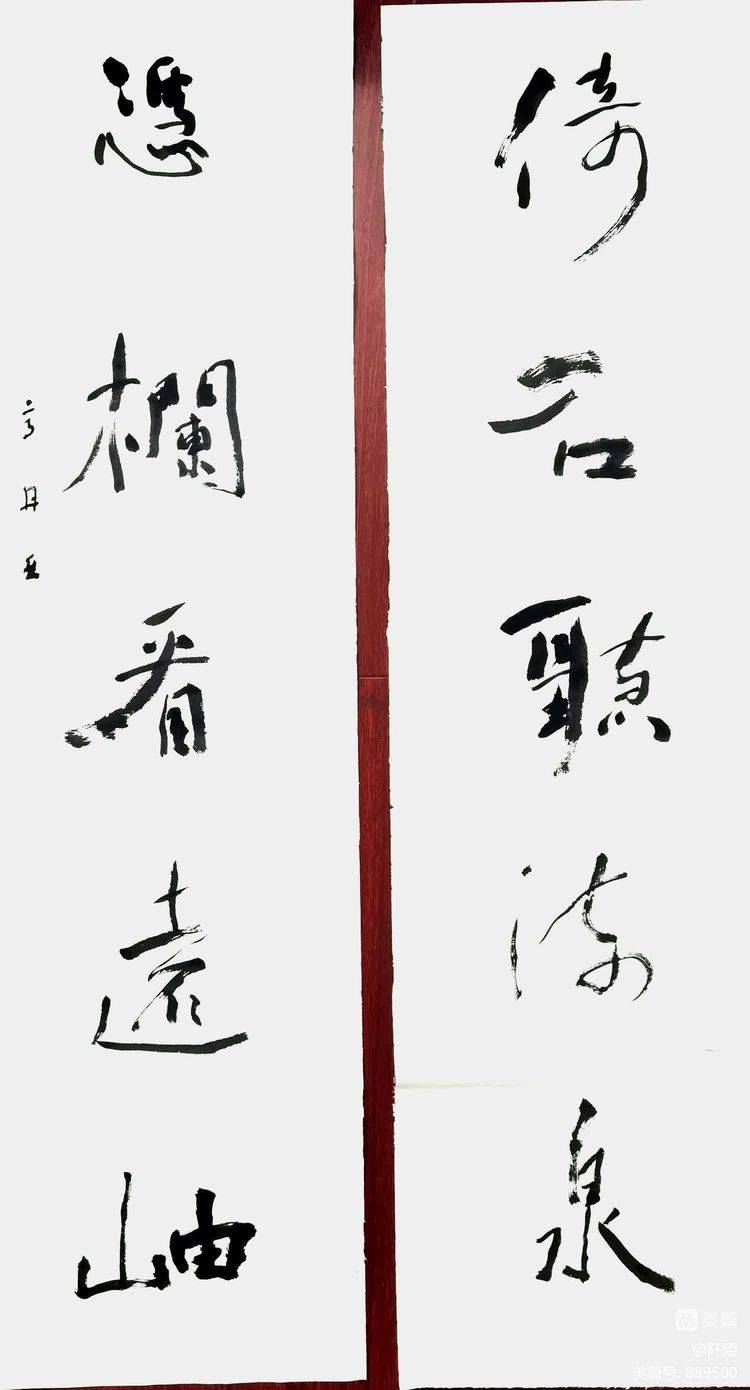 倚石聽流泉
憑欄看遠岫
美篇
@阡陌
美篇号: 889500